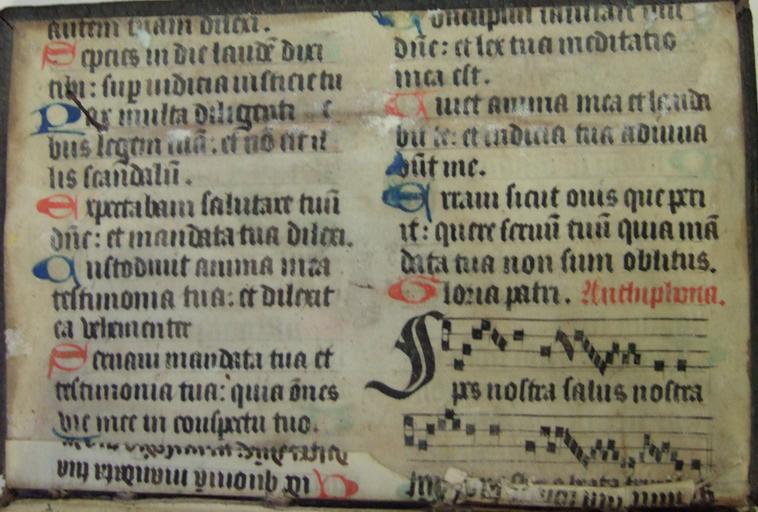 autem tuam dilexi.
Sepcies in die laudē dixi
tibi: sup iudicia iusticie tu
Pax multa diligenti
bus legem tuā: et nō est il
lis scandalū.
Expectabam salutare tuū
dn̄e: et mandata tua dilexi.
Custodiuit anima mea
testimonia tua: et dilexit
ea vehementer
Seruaui mandata tua et
testimonia tua: quia ōnes
vie mee in conspectu tuo.
Concupiui salutare tuū
dn̄e: et lex tua meditatio
mea est.
Uiuet anima mea et lauda
bit te: et iudicia tua adiuua
būt me.
Erraui sicut ouis que peri
it: quere seruū tuū quia mā
data tua non sum oblitus.
Gloria patri. Anthiphona.
Spes nostra salus nostra